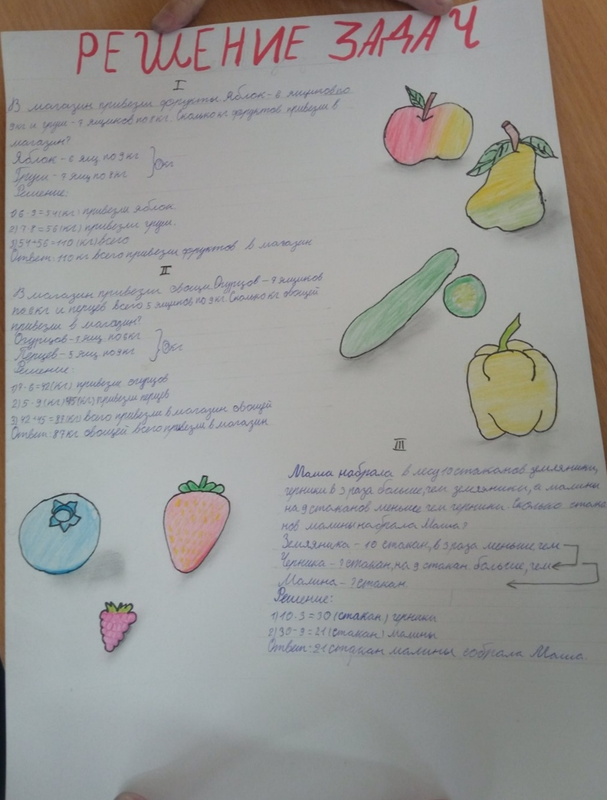 РЕШЕНИЕ ЗАДАЧ
I
В магазин привезли фрукты. Яблок - 6 ящиков по
9 кг и груши - 7 ящиков по 8 кг. Сколько кг фруктов привезли в
магазин?
Яблок - 6 ящ по 9 кг
Груши - 7 ящ по 8 кг
? кг
Решение:
1) 6 · 9 = 54 (кг) привезли яблок
2) 7 · 8 = 56 (кг) привезли груш.
3) 54 + 56 = 110 (кг) всего
Ответ: 110 кг всего привезли фруктов в магазин
II
В магазин привезли овощи. Огурцов - 7 ящиков
по кг и перцев всего 5 ящиков по 9 кг. Сколько кг овощей
привезли в магазин?
Огурцов - ящ по кг
Перцев - 5 ящ по 9 кг
? кг
Решение:
1) 7 · 6 = 42 (кг) привезли огурцов
2) 5 · 9 (кг) 45 (кг) привезли перцев
3) 42 + 45 = 87 (кг) всего привезли в магазин овощей
Ответ: 87 кг овощей всего привезли в магазин
III
Маша набрала в лесу 10 стаканов земляники,
черники в 3 раза больше, чем земляники, а малины
на 9 стаканов меньше чем черники. Сколько стака
нов малины набрала Маша?
Земляника - 10 стакан, в 3 раза меньше, чем
Черника - ? стакан, на 9 стакан. больше, чем
Малина - ? стакан
Решение:
1) 10 · 3 = 30 (стакан) черники
2) 30 - 9 = 21 (стакан) малины
Ответ: 21 стакан малины собрала Маша